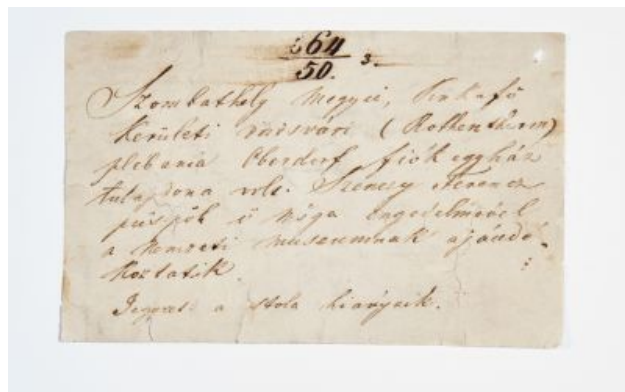 64
50. 3.
Szombathely Megyei, Pinkafő
kerületi vörösvári (Rothenthurm)
plebania Oberdorf fiók egyház
tulajdona volt. Szenczy Ferencz
püspök ő Maga engedelmével
a nemzeti museumnak ajándé-
koztatik.
Jegyzet: a stola hiányzik.